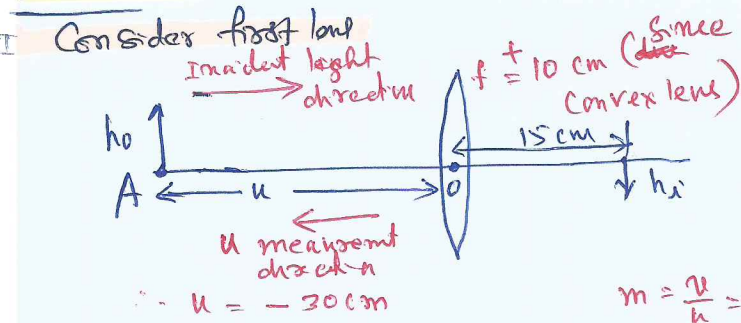 I Consider first lens
Incident light
direction
f = + 10 cm (Since
Convex lens)
h₀
15 cm
A
u
O
hᵢ
u measurement
direction
∴ u = - 30 cm
m = v/u =